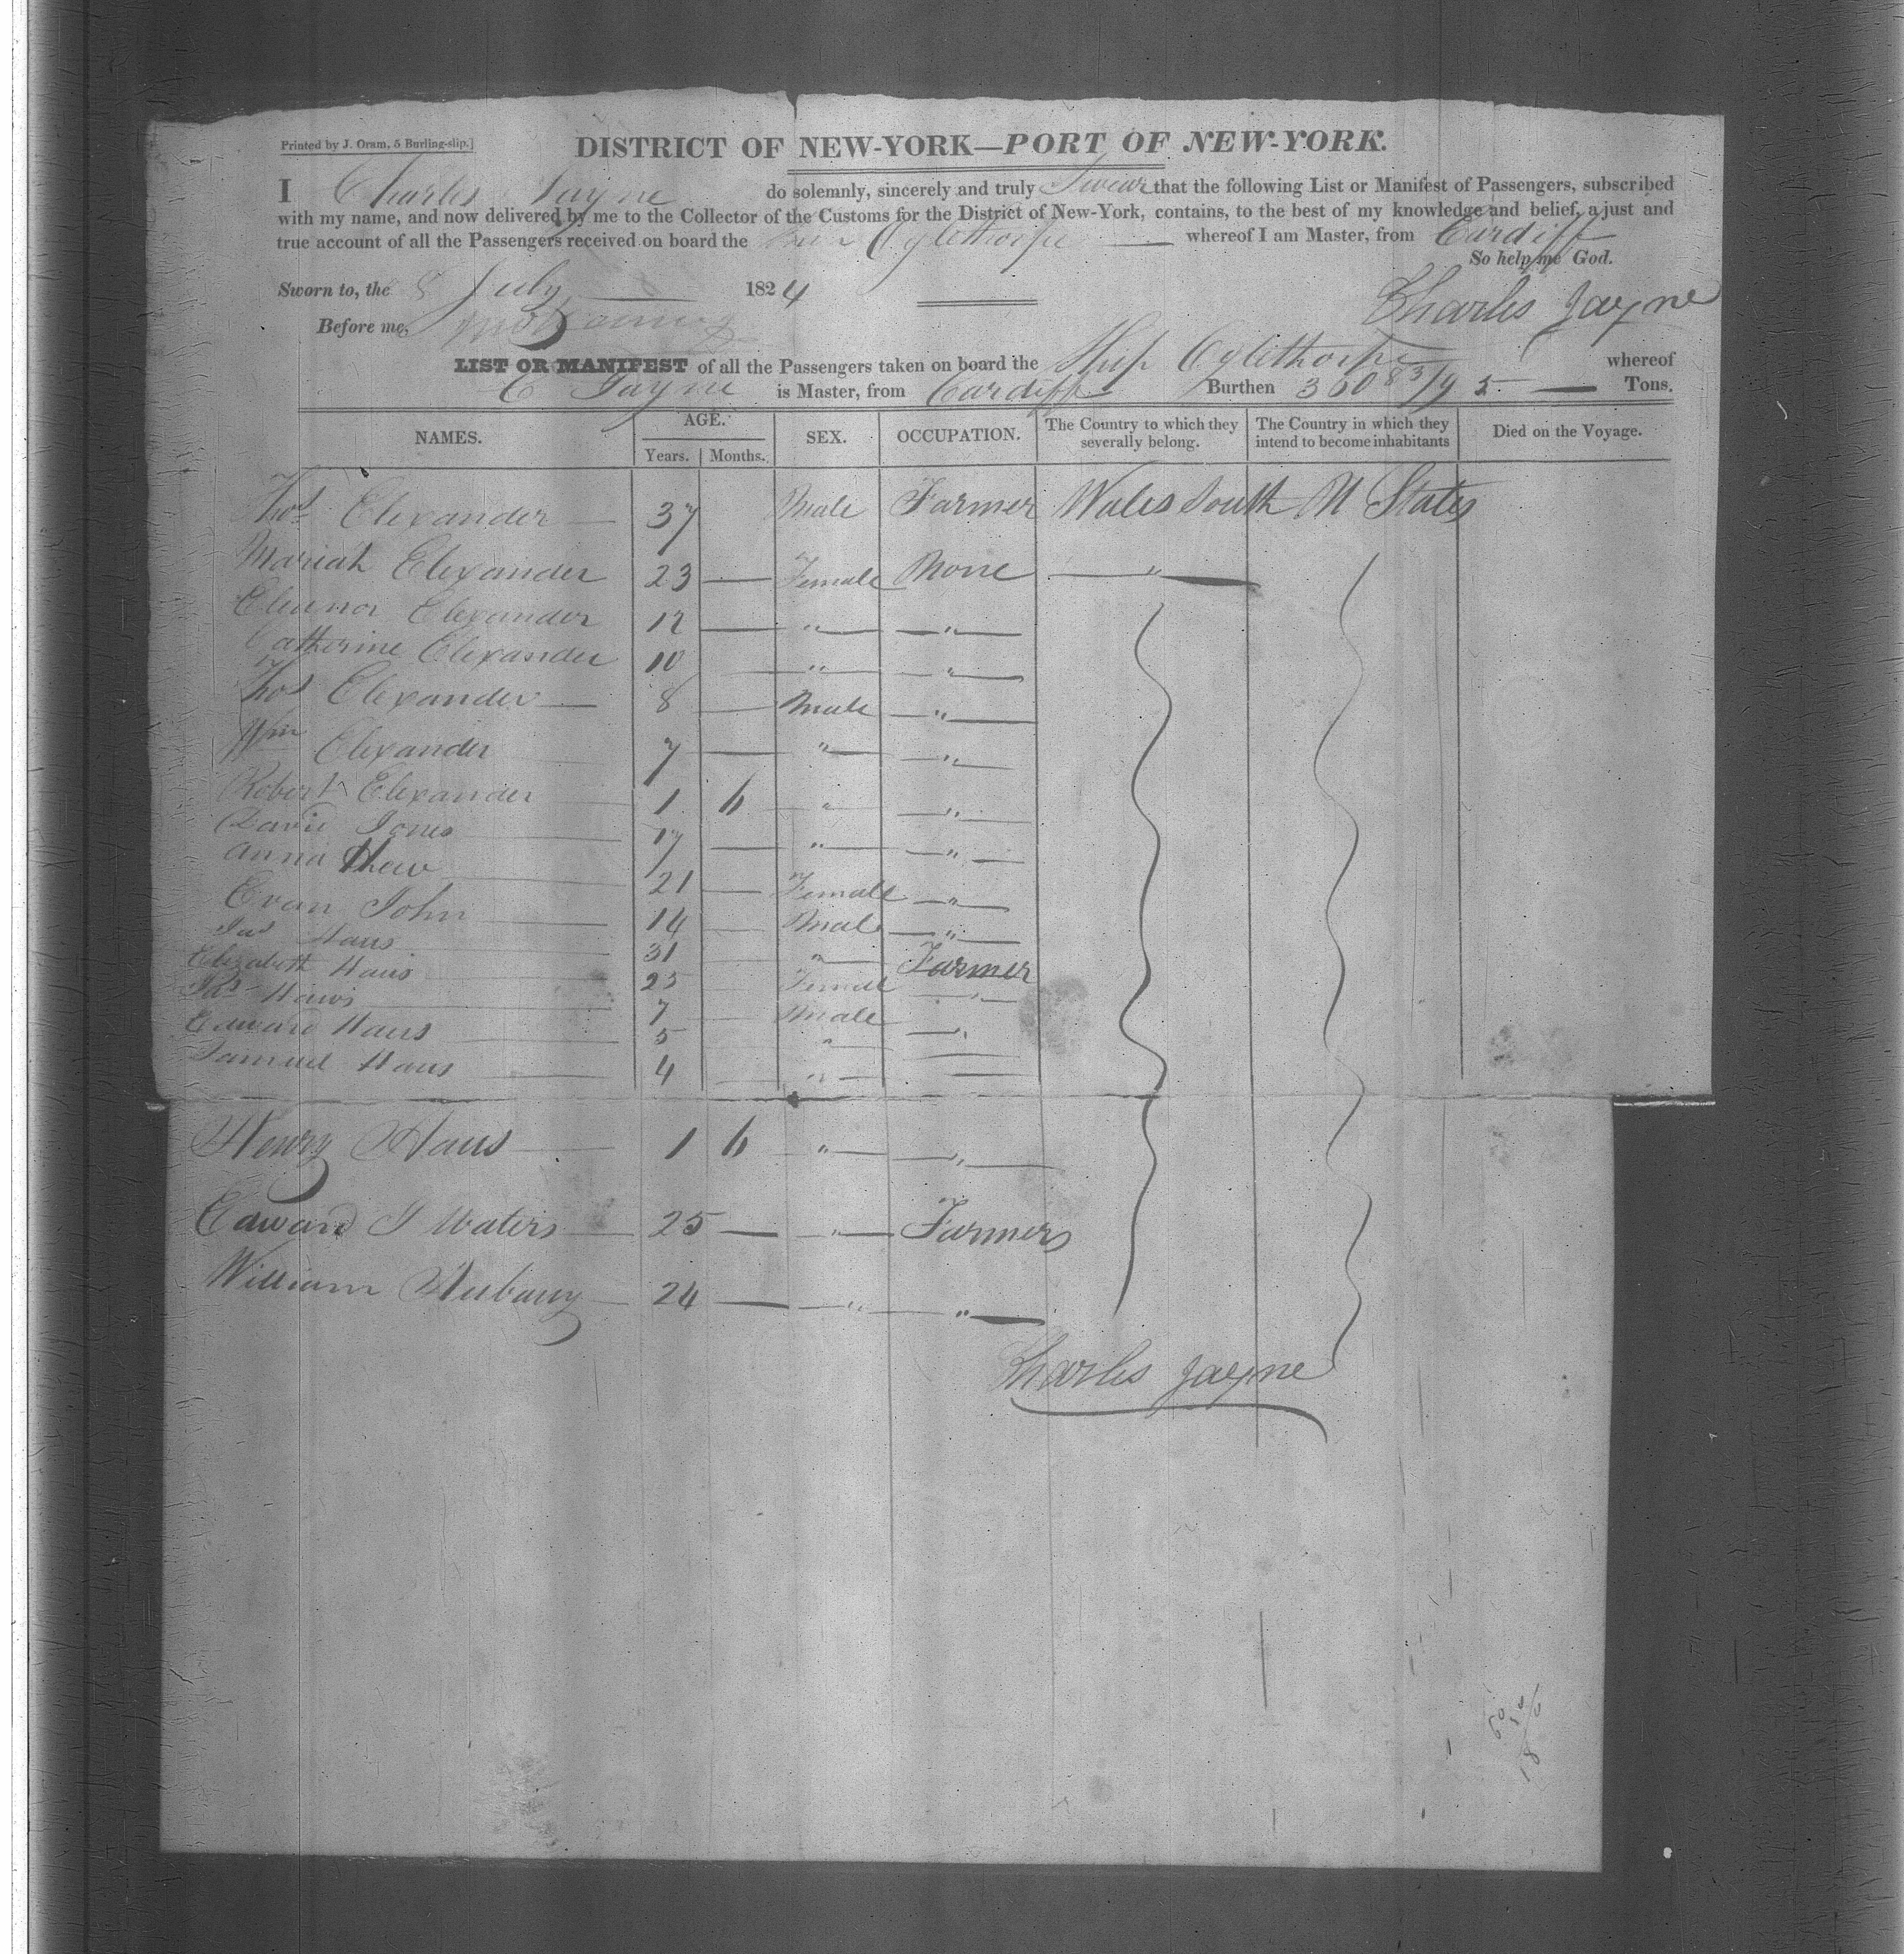 Printed by J. Oram, 5 Burling-slip.]
DISTRICT OF NEW-YORK—PORT OF NEW-YORK.
I Charles Jayne do solemnly, sincerely and truly Swear that the following List or Manifest of Passengers, subscribed
with my name, and now delivered by me to the Collector of the Customs for the District of New-York, contains, to the best of my knowledge and belief, a just and
true account of all the Passengers received on board the Oglethorpe — whereof I am Master, from Cardiff
So help me God.
Sworn to, the 8 July 1824
Charles Jayne
Before me,
LIST OR MANIFEST of all the Passengers taken on board the Ship Oglethorpe whereof
C Jayne is Master, from Cardiff Burthen 360 83/95 — Tons.
NAMES. AGE. Years. Months. SEX. OCCUPATION. The Country to which they severally belong. The Country in which they intend to become inhabitants Died on the Voyage.
Thos Elexander — 37 Male Farmer Wales South U States
Mariah Elexander 23 — Female None — " —
Eleanor Elexander 12 — " — — " —
Catherine Elexander 10 — " — — " —
Thos Elexander — 8 — Male — " —
Wm Elexander 7 — " — — " —
Robert Elexander 1 6 " — " —
David Jones 17 — " — — " —
Anna 21 — Female — " —
Evan John 14 — Male — " —
Jas Haus 31 " Farmer
Elizabeth Haus 25 Female — " —
Jas Haus 7 Male — " —
Edward Haus 5 "
Samuel Haus 4 " —
Henry Haus 1 6 — " — — " —
Edward J Waters 25 — — " — Farmers
William 24 — — " — " —
Charles Jayne